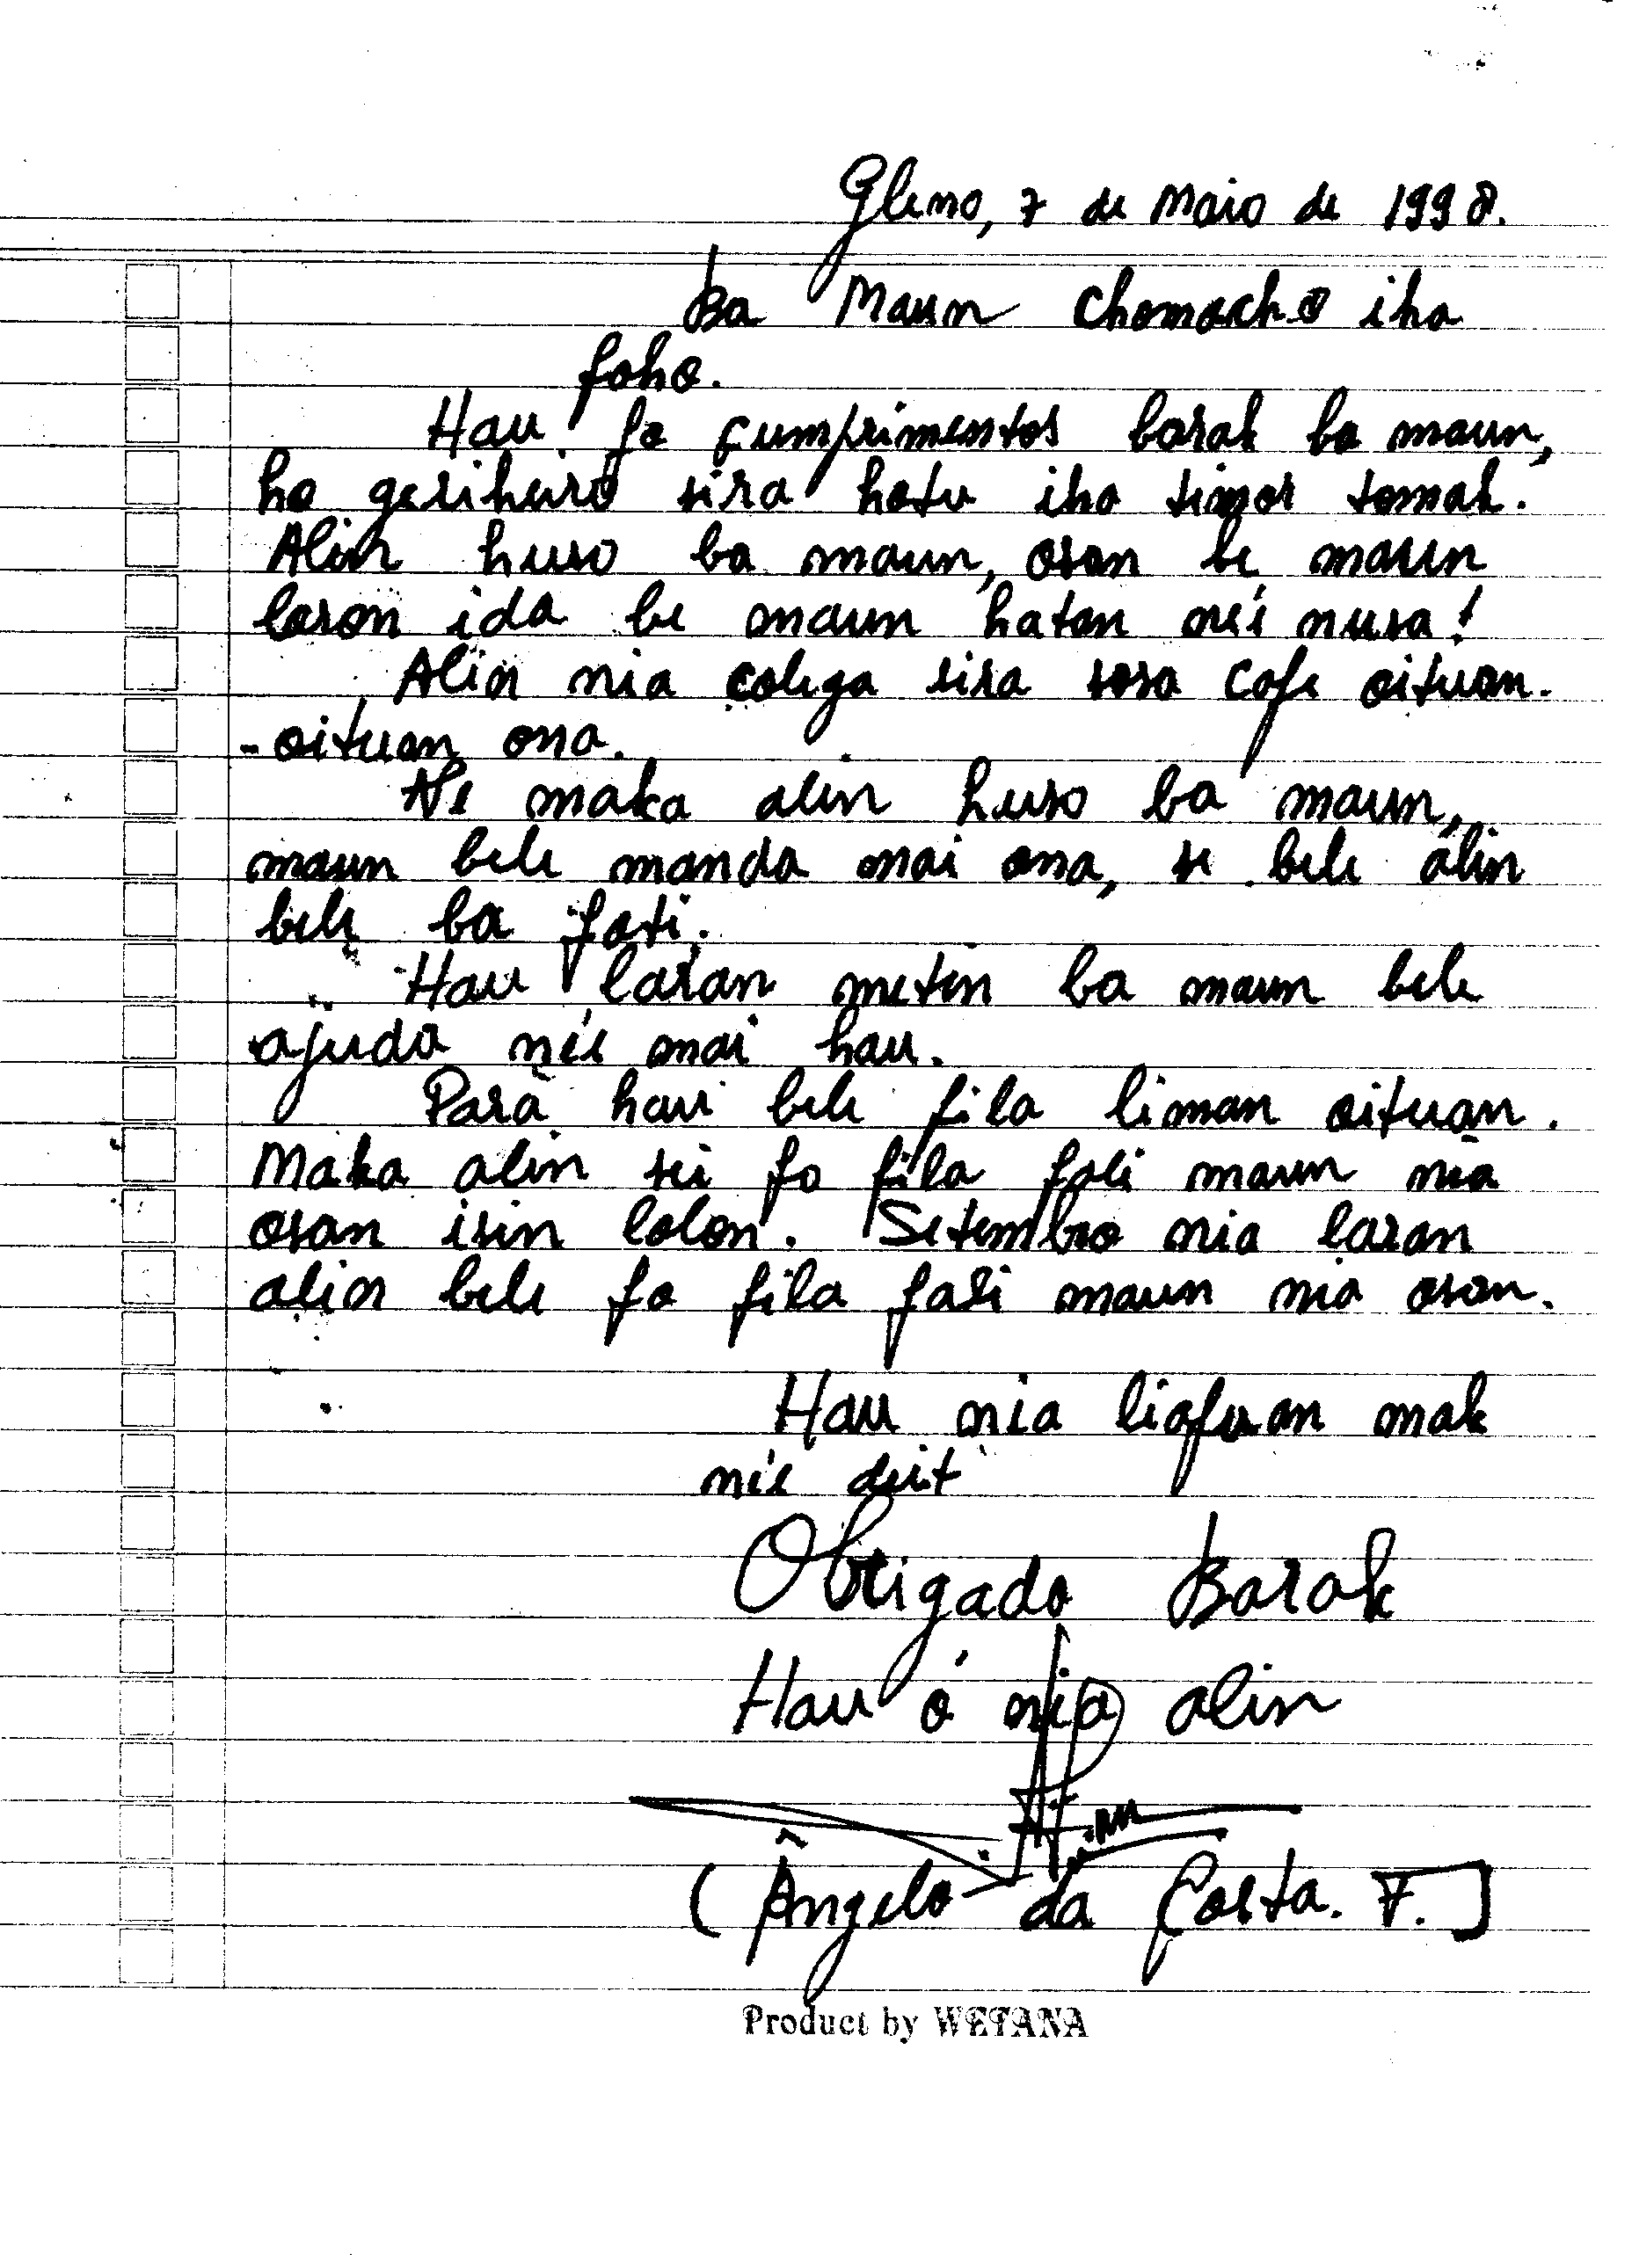 Gleno, 7 de Maio de 1998.
Ba Maun Chomacho iha
foho.
Hau fo cumprimentos barak ba maun,
ho geriheiro sira hotu iha timor tomak.
Alin huso ba maun, osan be maun
loron ida be maun hatan neí nusa!
Alin nia colega sira sosa cofe oituan.
-oituan ona.
Ne maka alin huso ba maun,
maun bele manda mai ona, se bele alin
bele ba foti.
Hau laran metin ba maun bele
ajuda néé mai hau.
Para hau bele fila liman oituan.
Maka alin sei fo fila fali maun nia
osan isin lolon. Setembro nia laran
alin bele fo fila fali maun nia osan.
Hau nia liafuan mak
néé deit
Obrigado Barak
Hau ó nia alin
(Ângelo da Costa. F.]
Product by WETANA